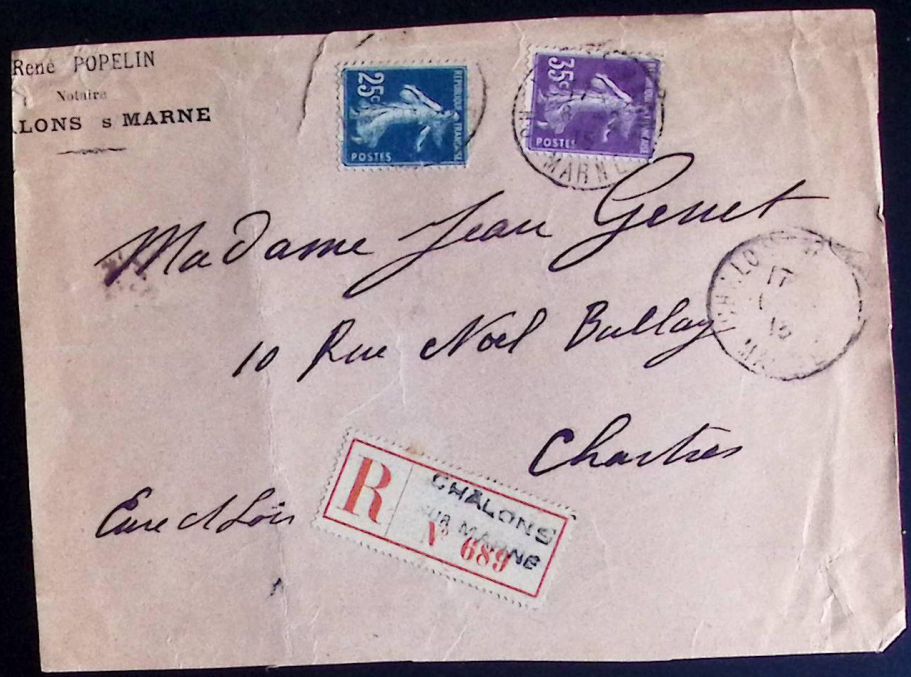 René POPELIN
Notaire
LONS s MARNE
25c
REPUBLIQUE FRANÇAISE
POSTES
35c
POSTES
MARNE
Madame Jean Genet
10 Rue Noël Ballay
Chartres
Eure et Loir
17
15
R
CHÂLONS
SUR MARNE
N° 689